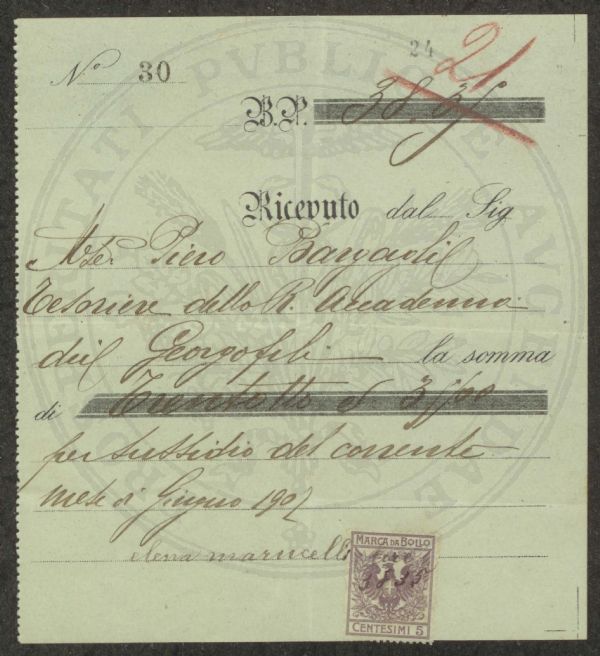 24 21
N° 30
B.P. 38.35
Ricevuto dal Sig
Piero Bargagli
Tesoriere della R. Accademia
dei Georgofili la somma
di Trentotto e 35/00
per sussidio del corrente
mese di Giugno 190
elena marucelli
MARCA DA BOLLO
CENTESIMI 5
PROSPERITATI PVBLICAE AVGENDAE